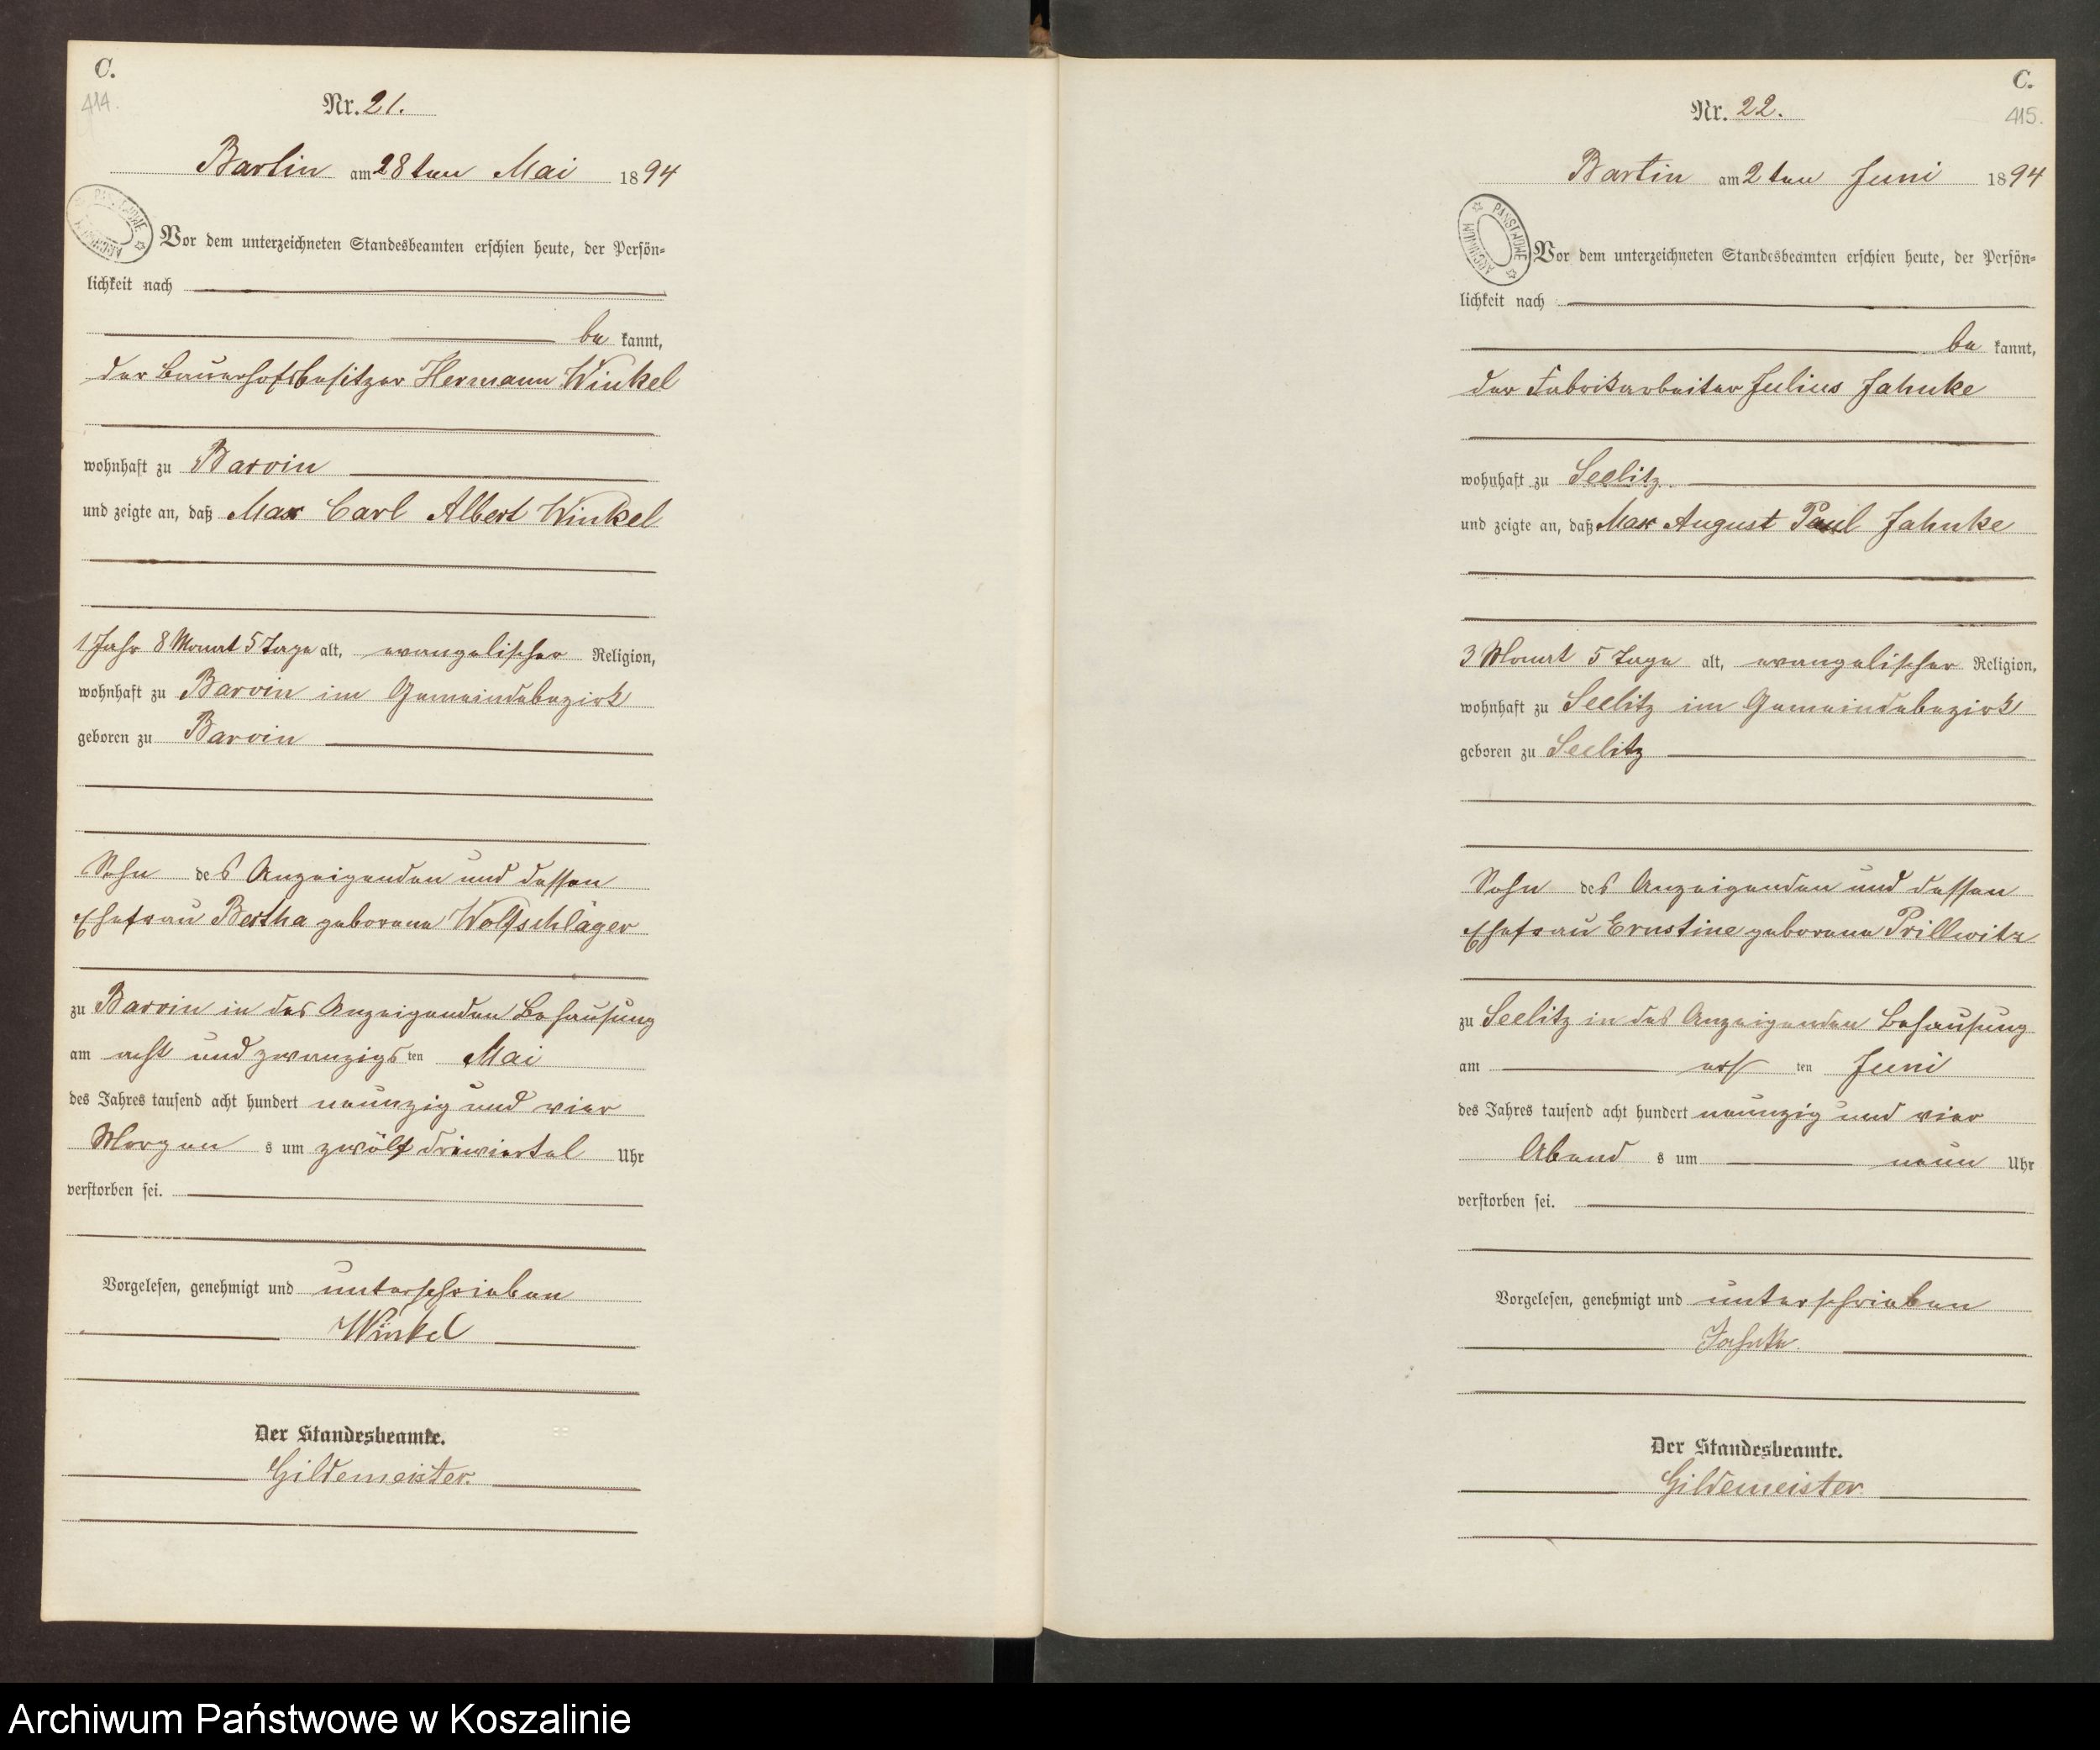 C.
414.
Nr. 21.
Bartin am 28ten Mai 1894
Vor dem unterzeichneten Standesbeamten erschien heute, der Persön-
lichkeit nach
be kannt,
der Bauerhofsbesitzer Hermann Winkel
wohnhaft zu Barvin
und zeigte an, daß Max Carl Albert Winkel
1 Jahr 8 Monat 5 Tage alt, evangelischer Religion,
wohnhaft zu Barvin im Gemeindebezirk
geboren zu Barvin
Sohn des Anzeigenden und dessen
Ehefrau Bertha geborene Wolfschläger
zu Barvin in des Anzeigenden Behausung
am acht und zwanzigsten Mai
des Jahres tausend acht hundert neunzig und vier
Morgen s um zwölf dreiviertel Uhr
verstorben sei.
Vorgelesen, genehmigt und unterschrieben
Winkel
Der Standesbeamte.
Gildemeister.
C.
415.
Nr. 22.
Bartin am 2ten Juni 1894
PAŃSTWOWE ARCHIWUM
Vor dem unterzeichneten Standesbeamten erschien heute, der Persön-
lichkeit nach
be kannt,
der Fabrikarbeiter Julius Jahnke
wohnhaft zu Seelitz.
und zeigte an, daß Max August Paul Jahnke
3 Monat 5 Tage alt, evangelischer Religion,
wohnhaft zu Seelitz im Gemeindebezirk
geboren zu Seelitz
Sohn des Anzeigenden und dessen
Ehefrau Ernstine geborene Prillwitz
zu Seelitz in des Anzeigenden Behausung
am ersten Juni
des Jahres tausend acht hundert neunzig und vier
Abend s um neun Uhr
verstorben sei.
Vorgelesen, genehmigt und unterschrieben
Jahnke.
Der Standesbeamte.
Gildemeister
Archiwum Państwowe w Koszalinie